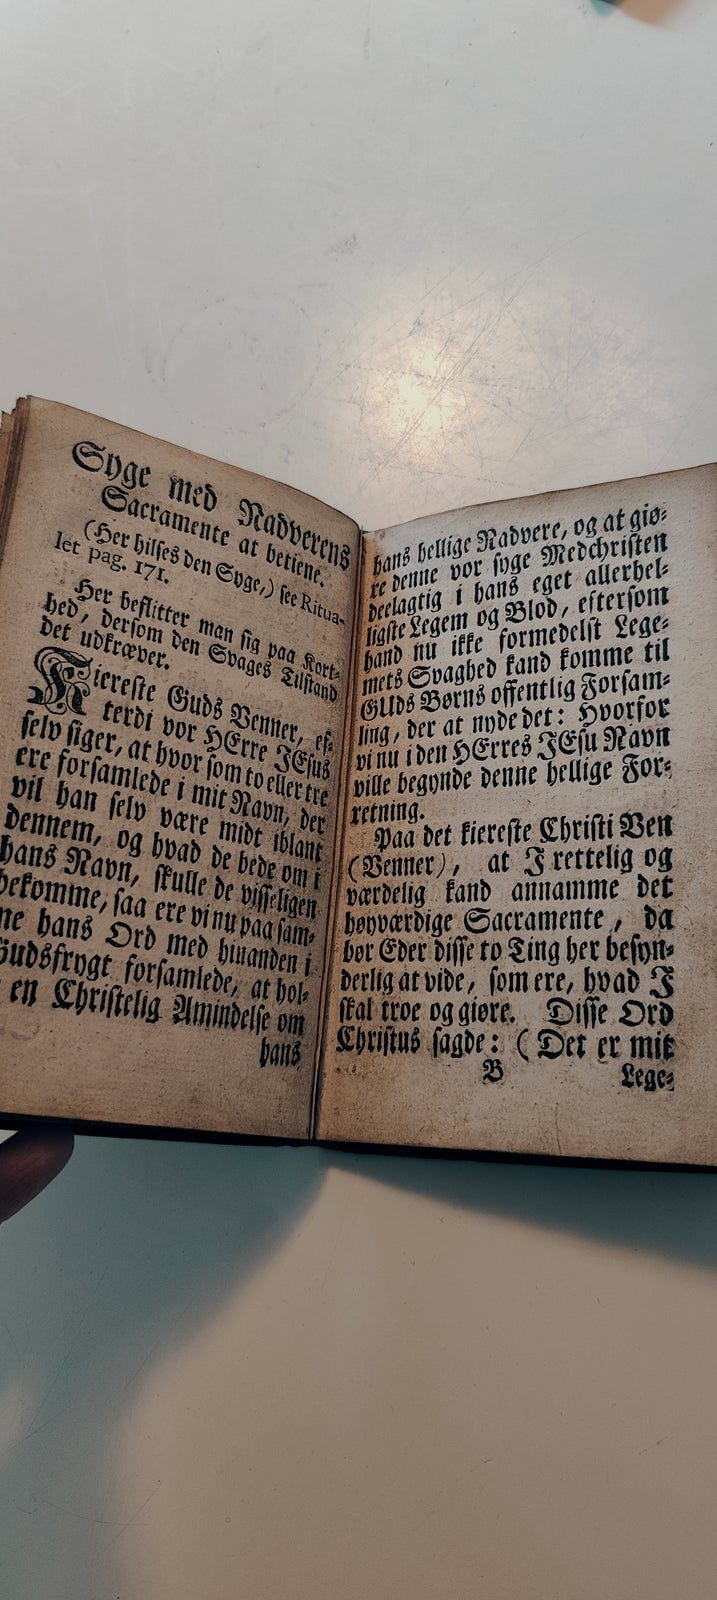 Syge med Nadverens
Sacramente at betiene.
(Her hilses den Syge,) see Ritua-
let pag. 171.
Her beflitter man sig paa Kort-
hed, dersom den Svages Tilstand
det udkræver.
Kiereste Guds Venner, ef-
terdi vor HErre JEsus
selv siger, at hvor som to eller tre
ere forsamlede i mit Navn, der
vil han selv være midt iblant
dennem, og hvad de bede om i
hans Navn, skulle de visseligen
bekomme, saa ere vi nu paa sam-
ne hans Ord med hinanden i
Gudsfrygt forsamlede, at hol-
en Christelig Amindelse om
hans
hans hellige Nadvere, og at giø-
re denne vor syge Medchristen
deelagtig i hans eget allerhel-
ligste Legem og Blod, eftersom
hand nu ikke formedelst Lege-
mets Svaghed kand komme til
GUds Børns offentlig Forsam-
ling, der at nyde det: Hvorfor
vi nu i den HErres JEsu Navn
ville begynde denne hellige For-
retning.
Paa det kiereste Christi Ven
(Venner), at I rettelig og
værdelig kand annamme det
høyværdige Sacramente, da
bør Eder disse to Ting her besyn-
derlig at vide, som ere, hvad I
skal troe og giøre. Disse Ord
Christus sagde: (Det er mit
B Lege-